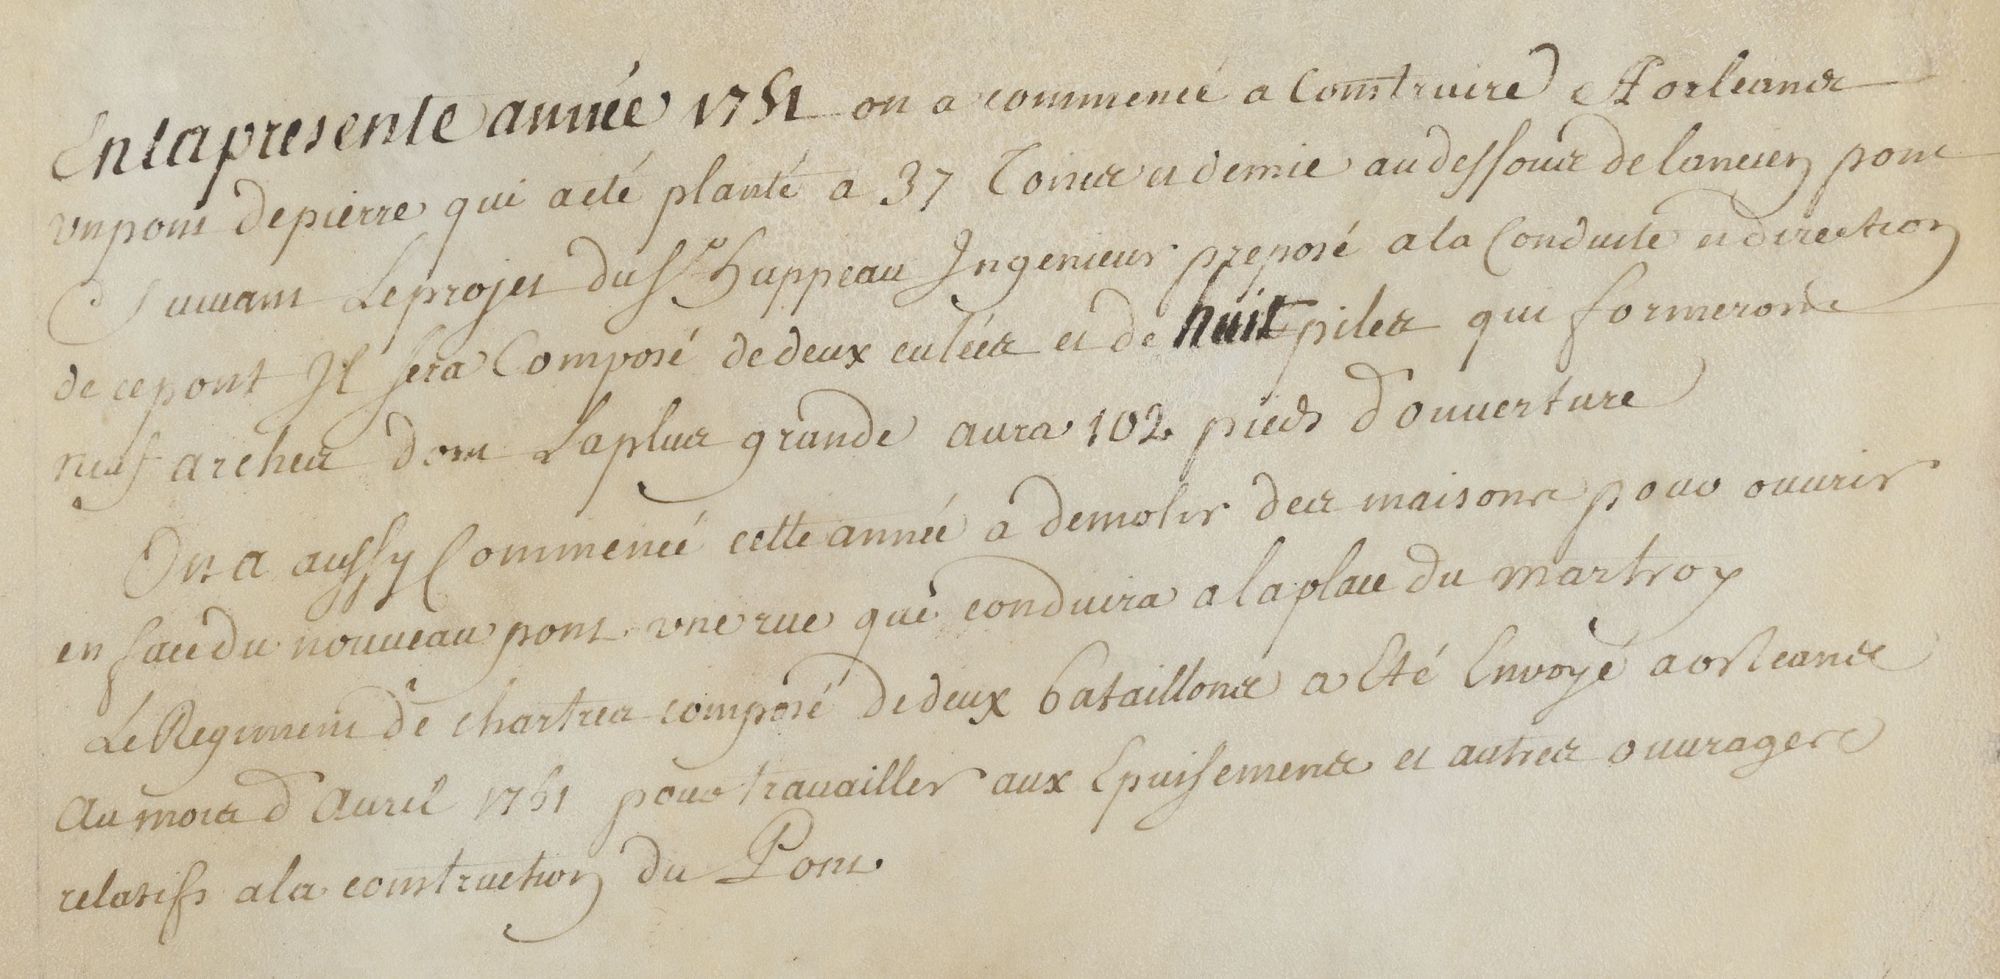 En la presente année 1751 on a commencé a Construire A orleans
un pont de pierre qui a eté planté a 37 Toises et demie au dessous de lancien pont
Suivant Le projet du Sr huppeau Ingenieur preposé a la Conduite et direction
de ce pont Il sera Composé de deux culées et de huit piles qui formeront
neuf arches dont La plus grande aura 102 pieds d'ouverture
On a aussy Commencé cette année a demolir des maisons pour ouvrir
en face du nouveau pont une rue qui conduira a la place du martroy
Le Regiment de chartres composé de deux bataillons a Eté Envoyé a orleans
Au mois d'Avril 1751 pour travailler aux Epuisements et autres ouvrages
relatifs a la construction du Pont